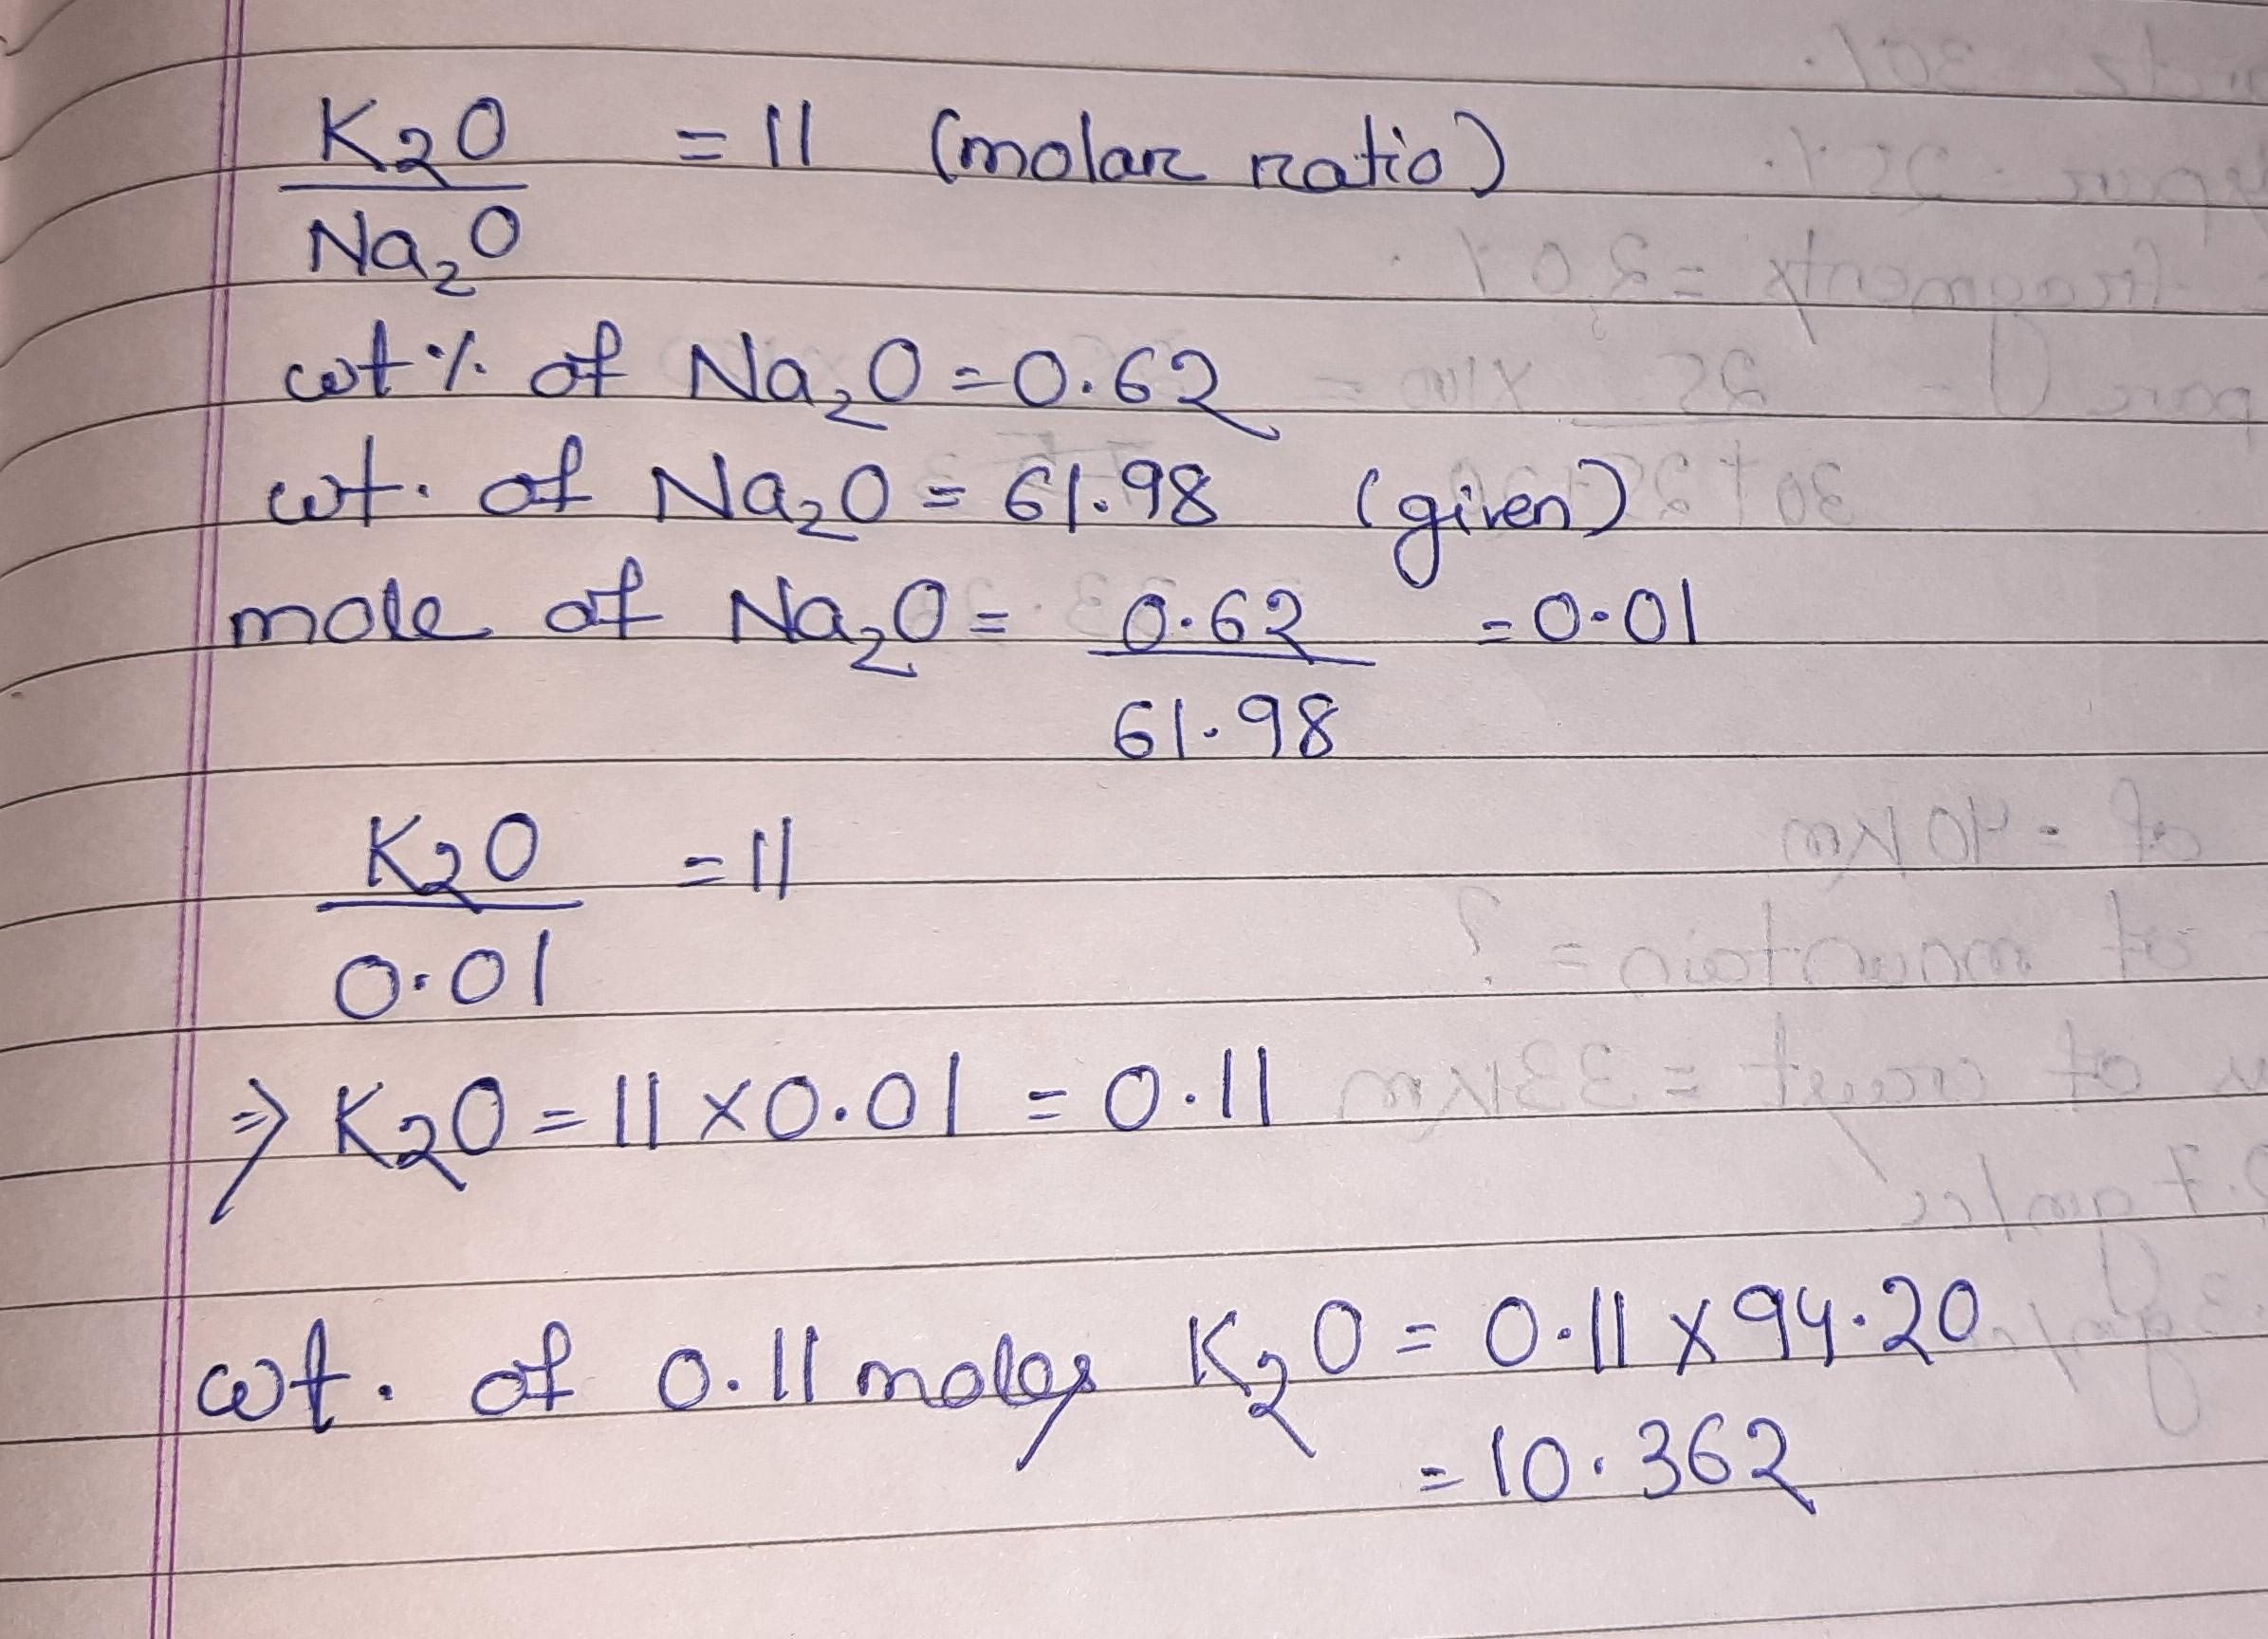 K₂O = 11 (molar ratio)
Na₂O
wt % of Na₂O = 0.62
wt. of Na₂O = 61.98 (given)
mole of Na₂O = 0.62 = 0.01
61.98
K₂O = 11
0.01
⇒ K₂O = 11 x 0.01 = 0.11
wt. of 0.11 moles K₂O = 0.11 x 94.20
= 10.362